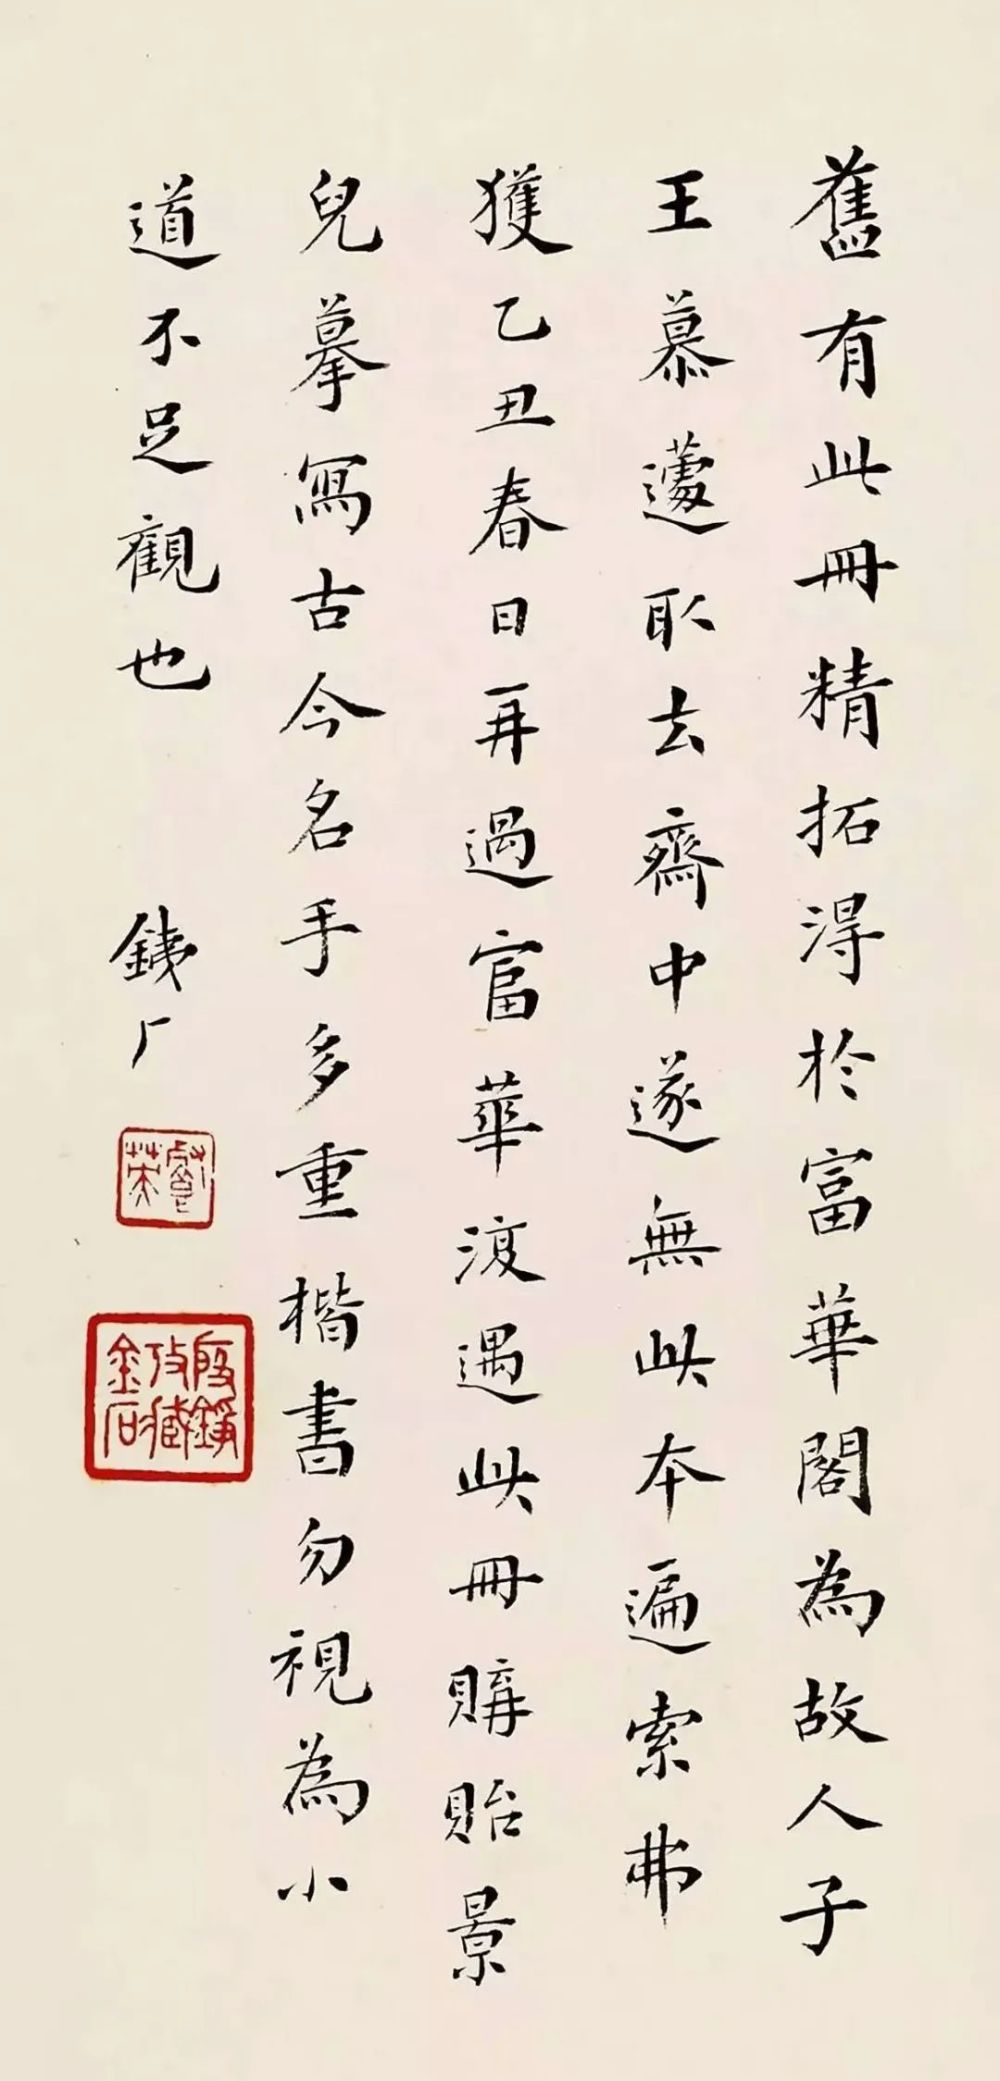 舊有此冊精拓得於富華閣為故人子
王慕蘧取去齋中遂無此本遍索弗
獲乙丑春日再過富華復遇此冊購貽景
兒摹寫古今名手多重楷書勿視為小
道不足觀也
銕厂